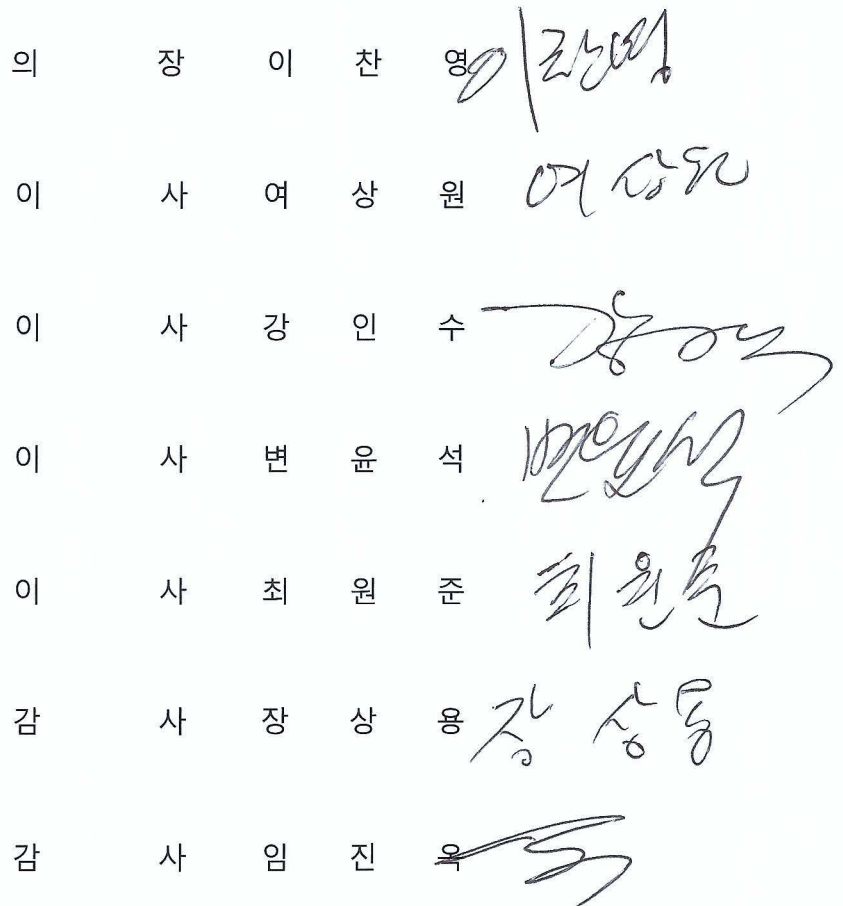 의 장 이 찬 영 이찬영
이 사 여 상 원 여상원
이 사 강 인 수
이 사 변 윤 석 변윤석
이 사 최 원 준 최원준
감 사 장 상 용 장상용
감 사 임 진 옥